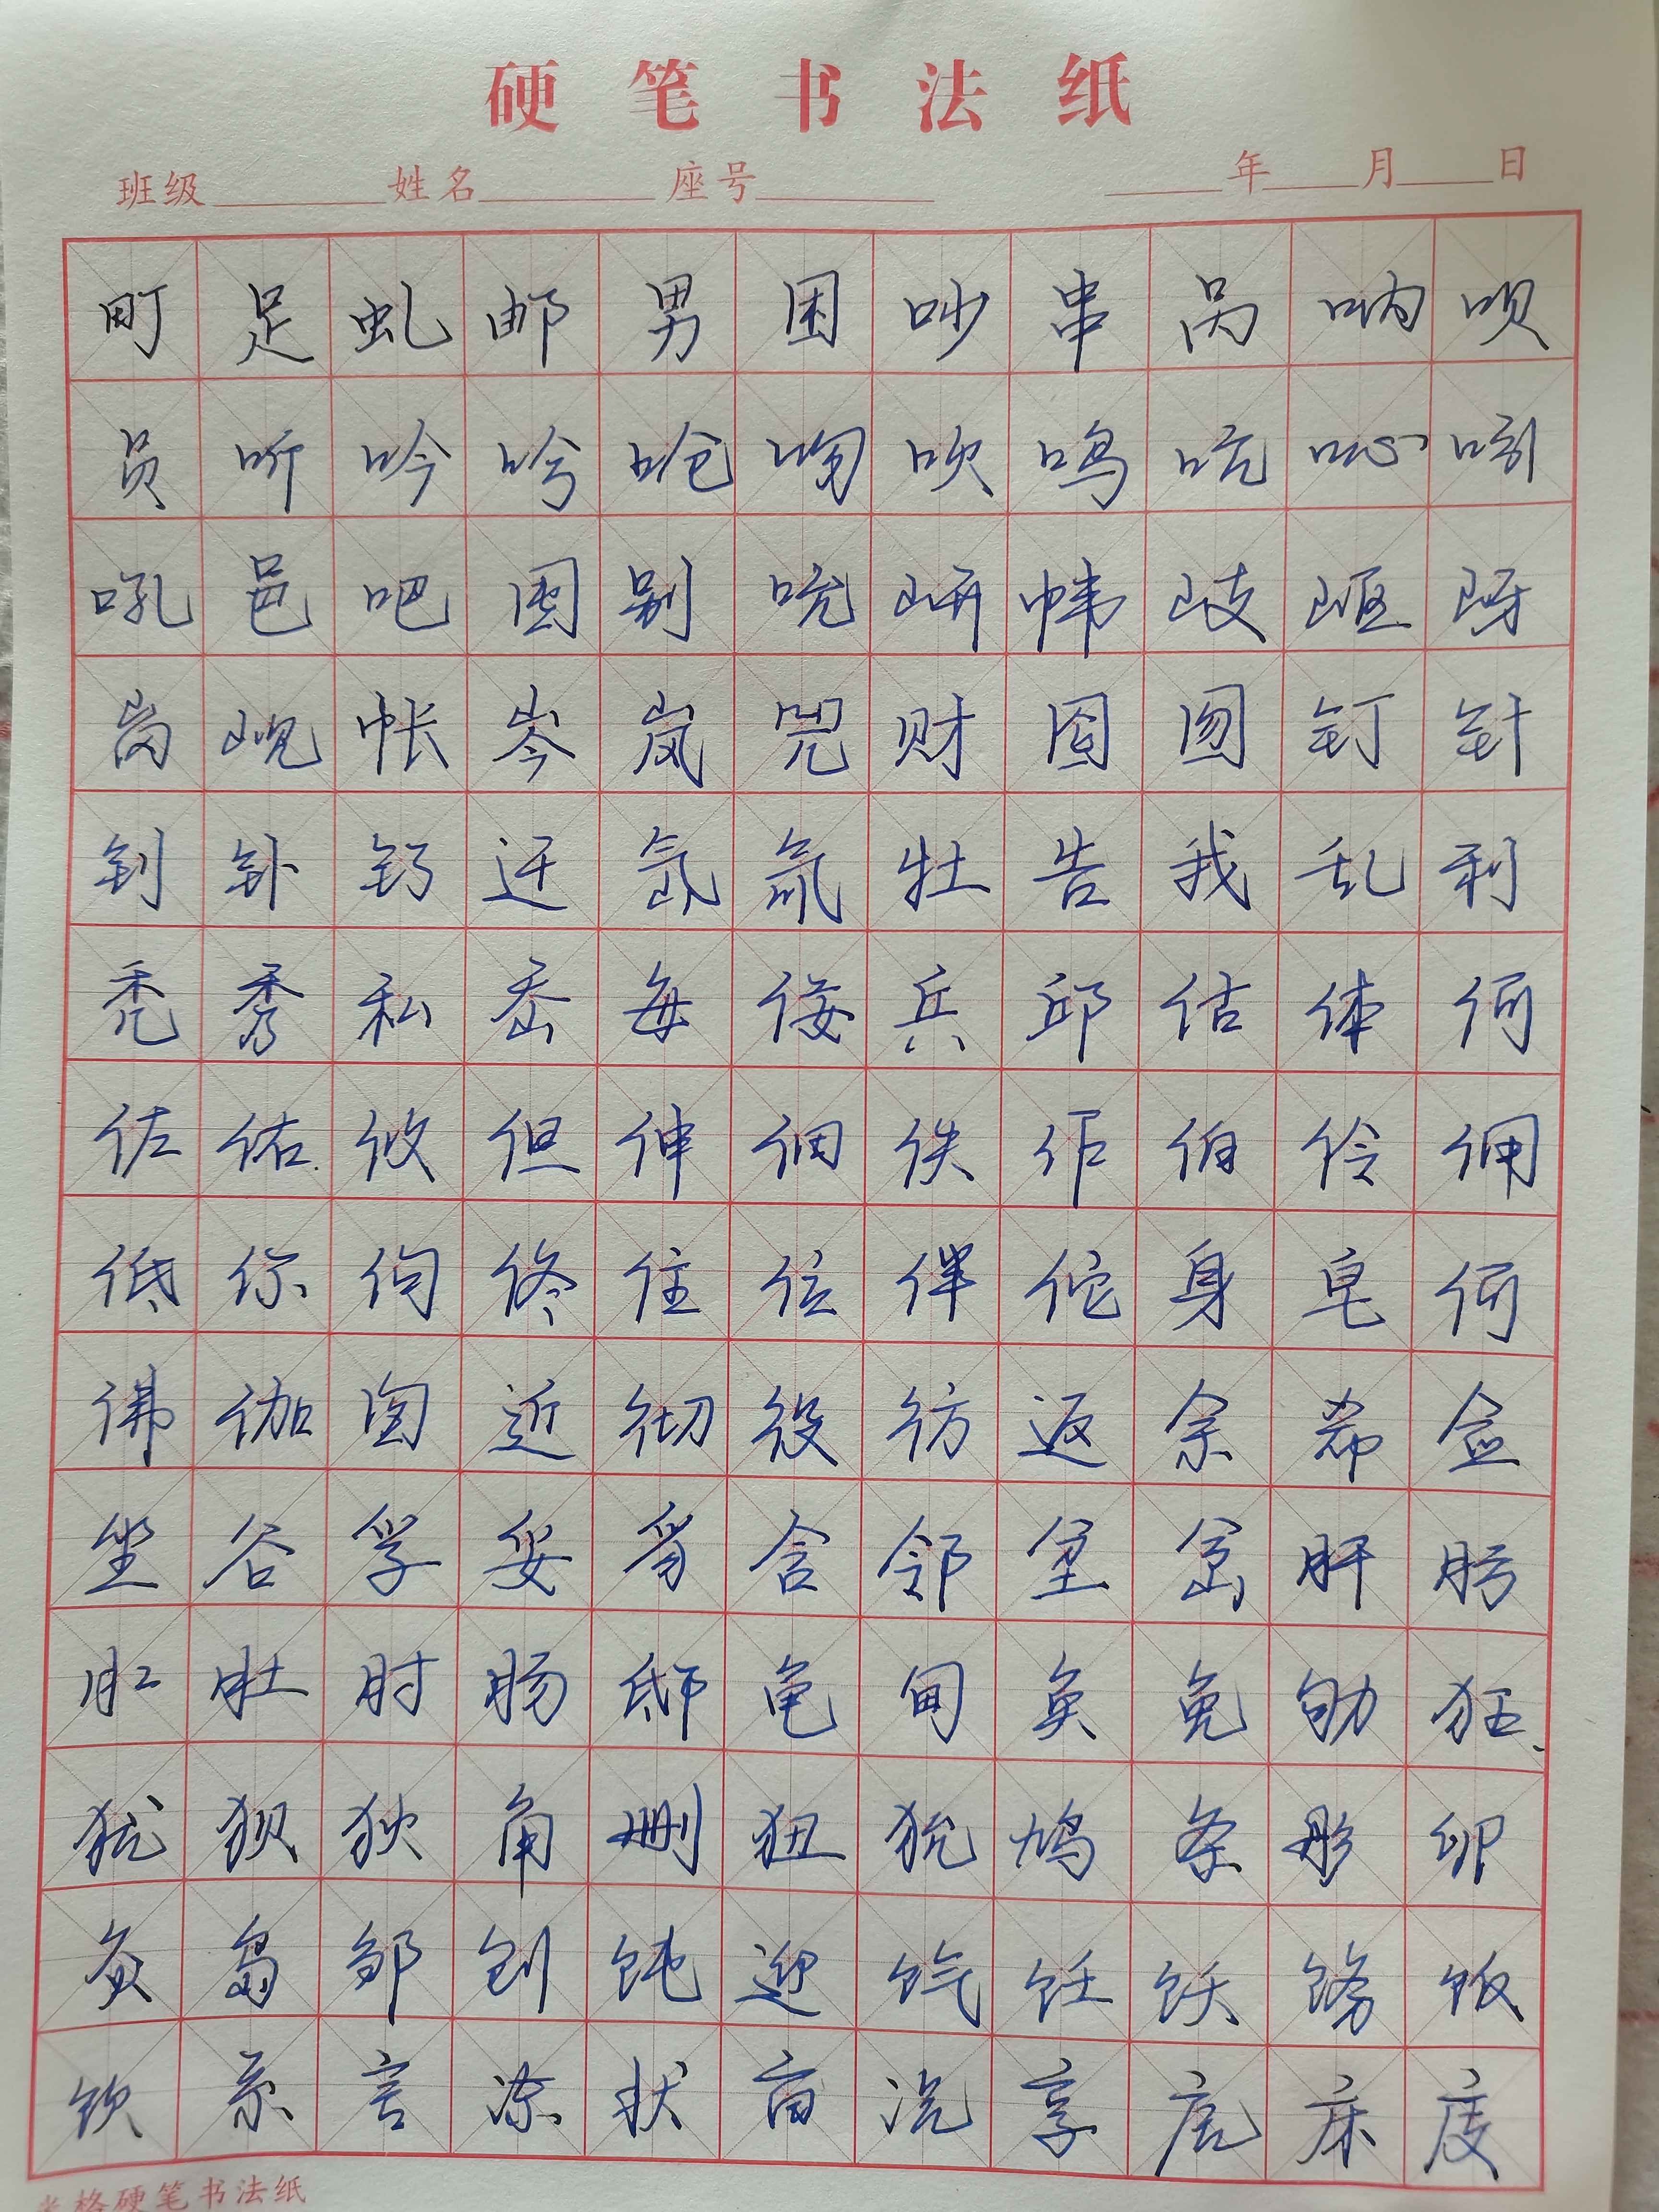 硬笔书法纸
班级 姓名 座号 年 月 日
町足虬邮男困吵串呙呐呗
员听吟吩呛吻吹鸣吭吣吲
吼邑吧囤别吮岍帏岐岖岈
岗岘帐岑岚兕财囵囫钉针
钊钋钌迕氙氚牡告我乱利
秃秀私岙每佞兵邱估体何
佐佑攸但伸佃佚作伯伶佣
低你佝佟住位伴佗身皂伺
佛伽囱近彻役彷返余希佥
坐谷孚妥豸含邻坌岔肝肟
肛肚肘肠邸龟甸奂免劬狂
犹狈狄角删狃狁鸠条彤卵
灸岛邹刨饨迎饩饪饫饬饭
饮系言冻状亩况亨庑床庋
米格硬笔书法纸